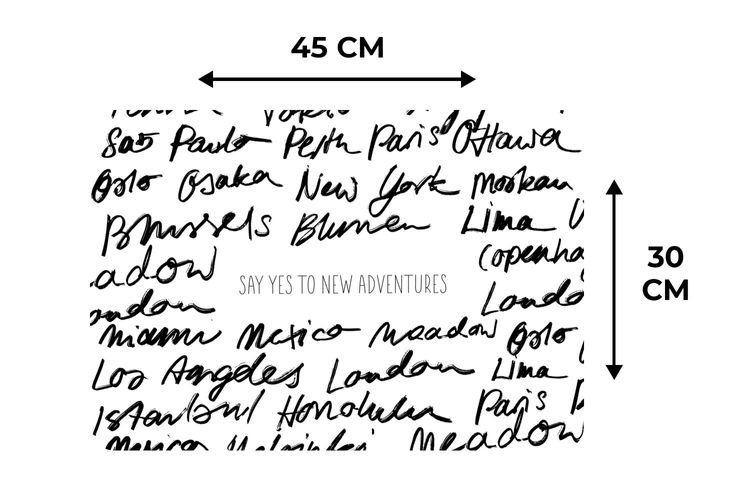 45 CM
Tokio
São Paulo Perth Paris Ottawa
Oslo Osaka New York Moskau
Brussels Blumen Lima
eadow Copenha
SAY YES TO NEW ADVENTURES
ondon Londo
30
CM
Miami Mexico Meadow Oslo
Los Angeles London Lima
Istanbul Honolulu Paris
Mexico Helsinki Meadow